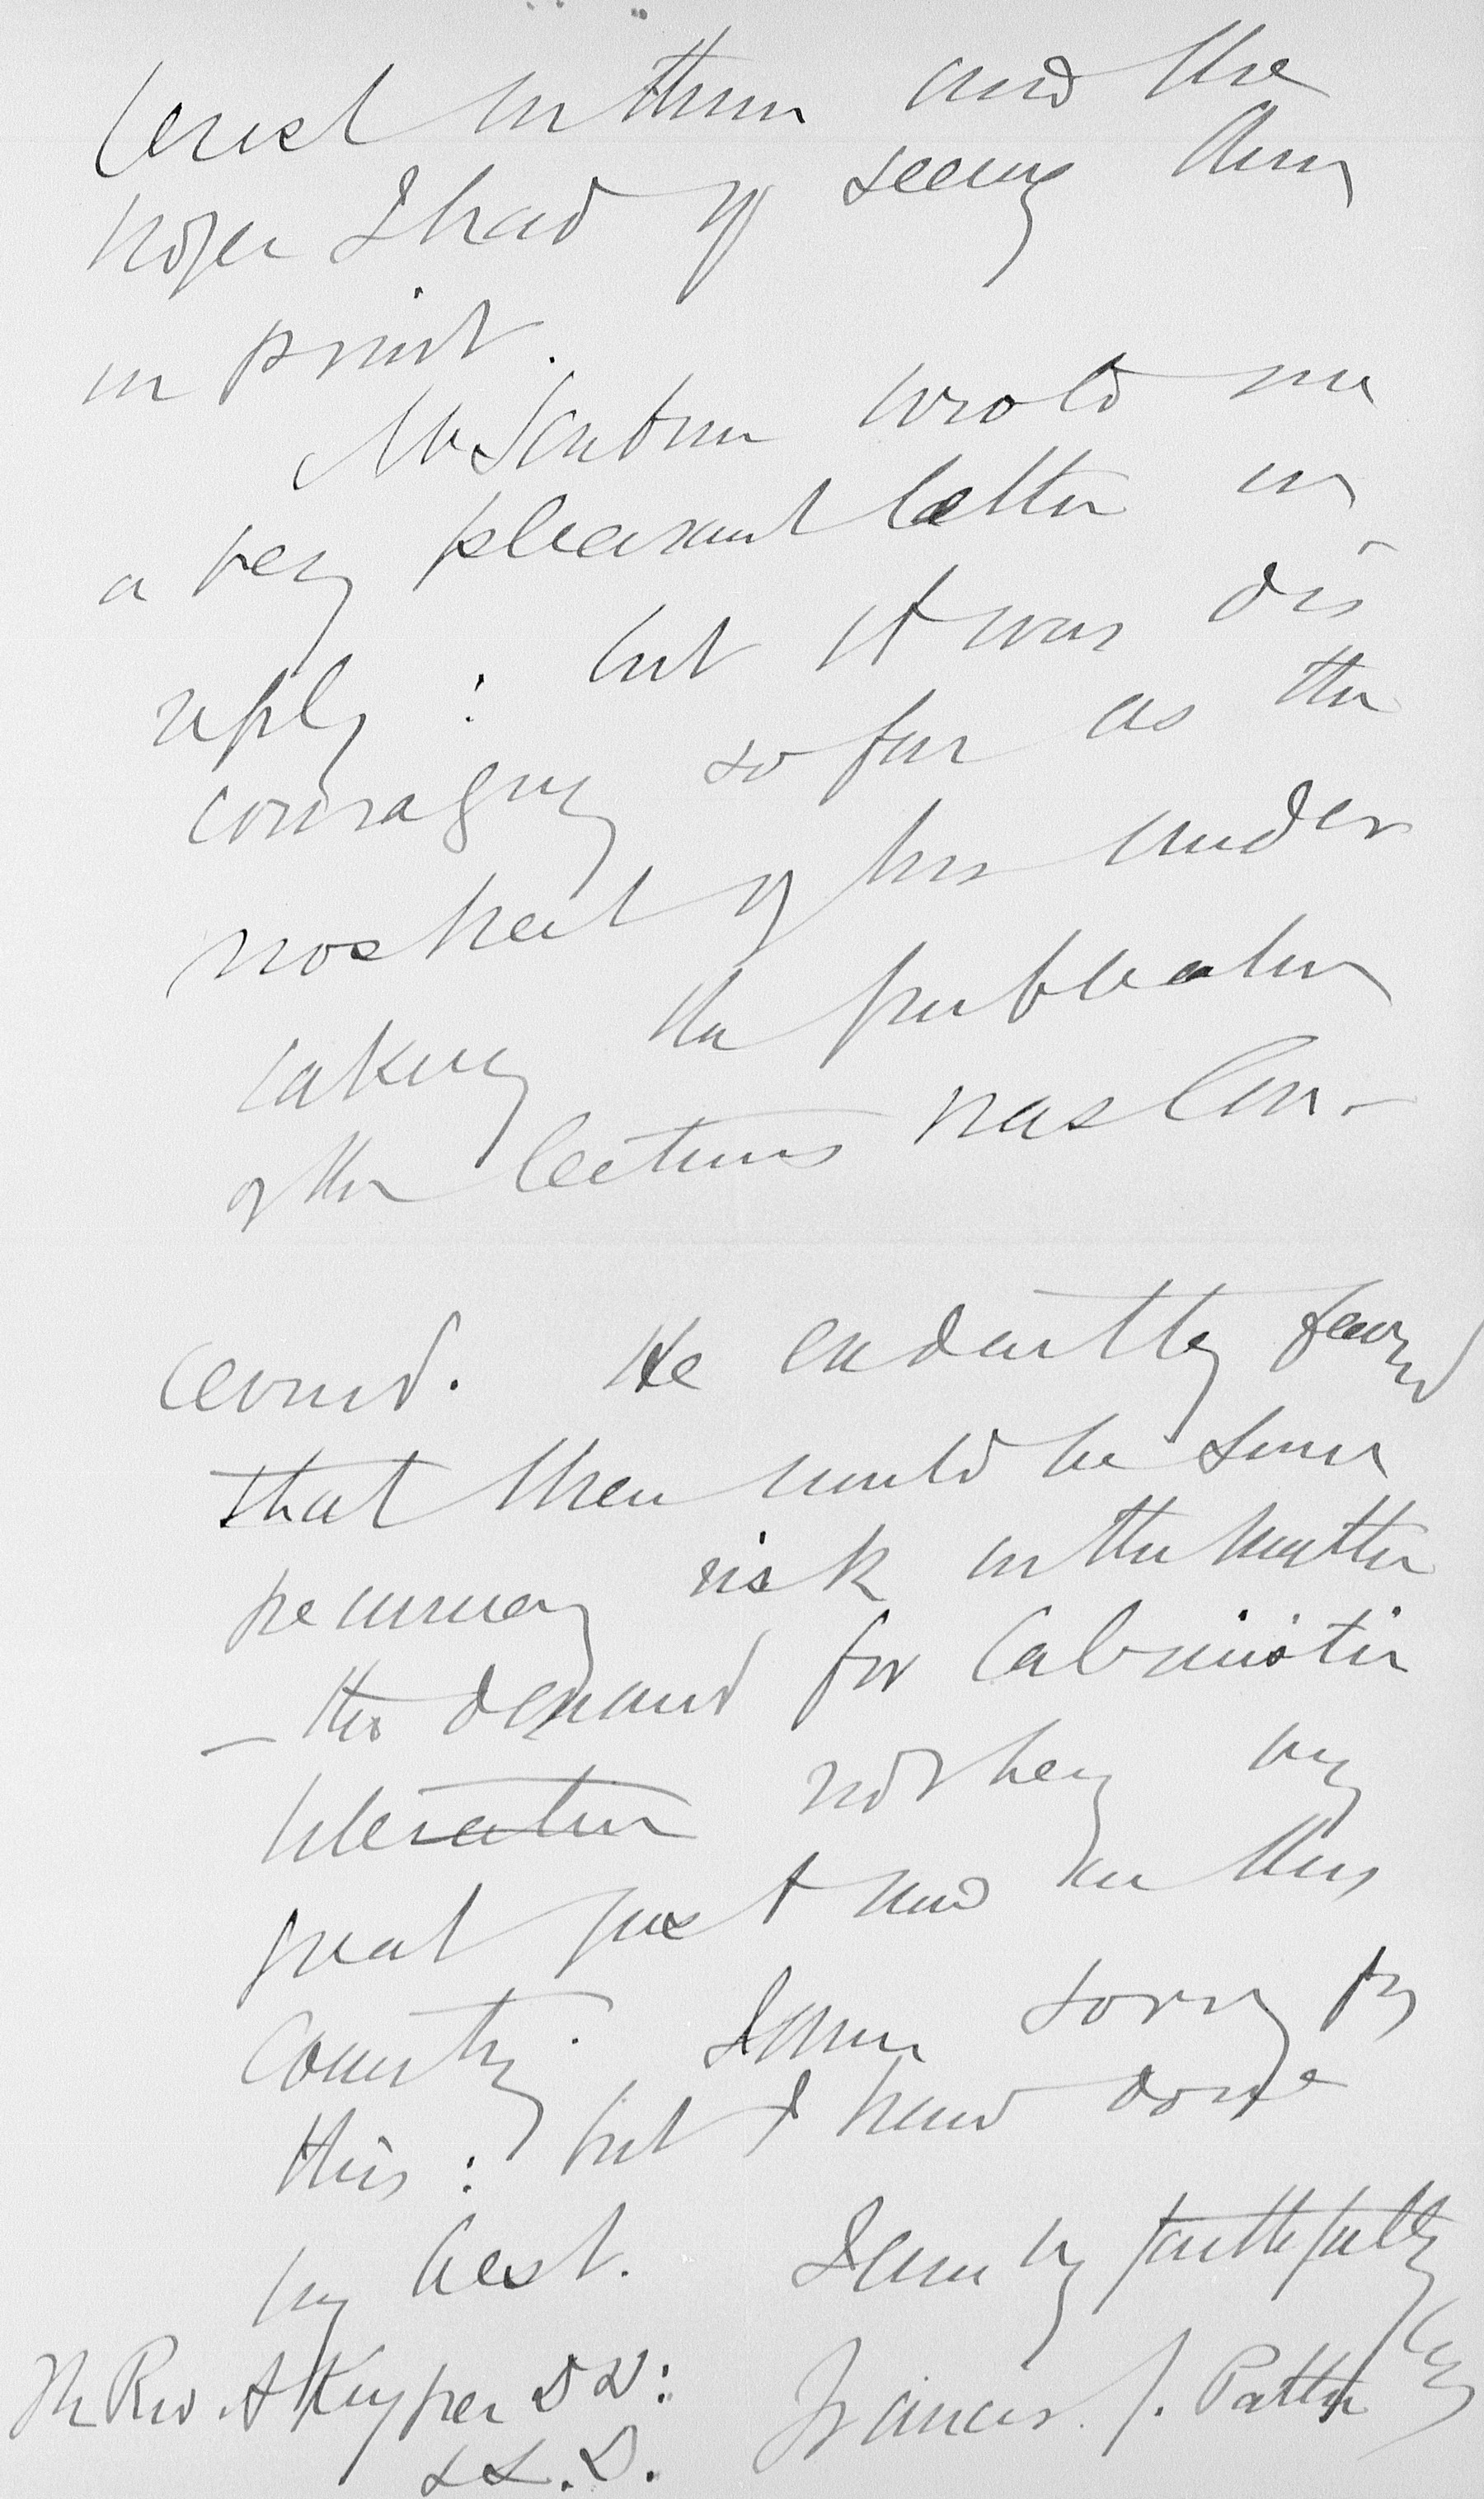 terest in them and the
hopes I had of seeing them
in print.
Mr Scribner wrote me
a very pleasant letter in
reply : but it was dis-
couraging so far as the
prospect of his under
taking the publication
of the lectures was con-
cerned. He evidently feared
that there would be some
pecuniary risk in the matter
– the demand for Calvinistic
literature not being very
great just now in this
country. I am sorry for
this : but I have done
my best. I am very faithfully
yrs
The Rev A Kuyper D D : Francis L. Patton
L L . D .